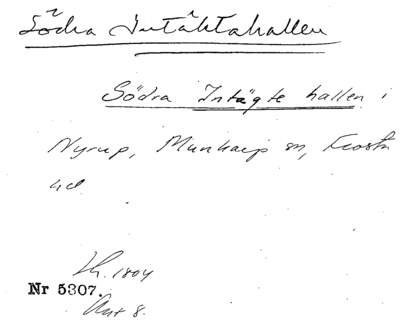 Södra Intäktahallen
Södra Intägte hallen i
Nyrup, Munkarp sn, Frosta
hd
Lh. 1804
Nr 5307.
Akt 8.